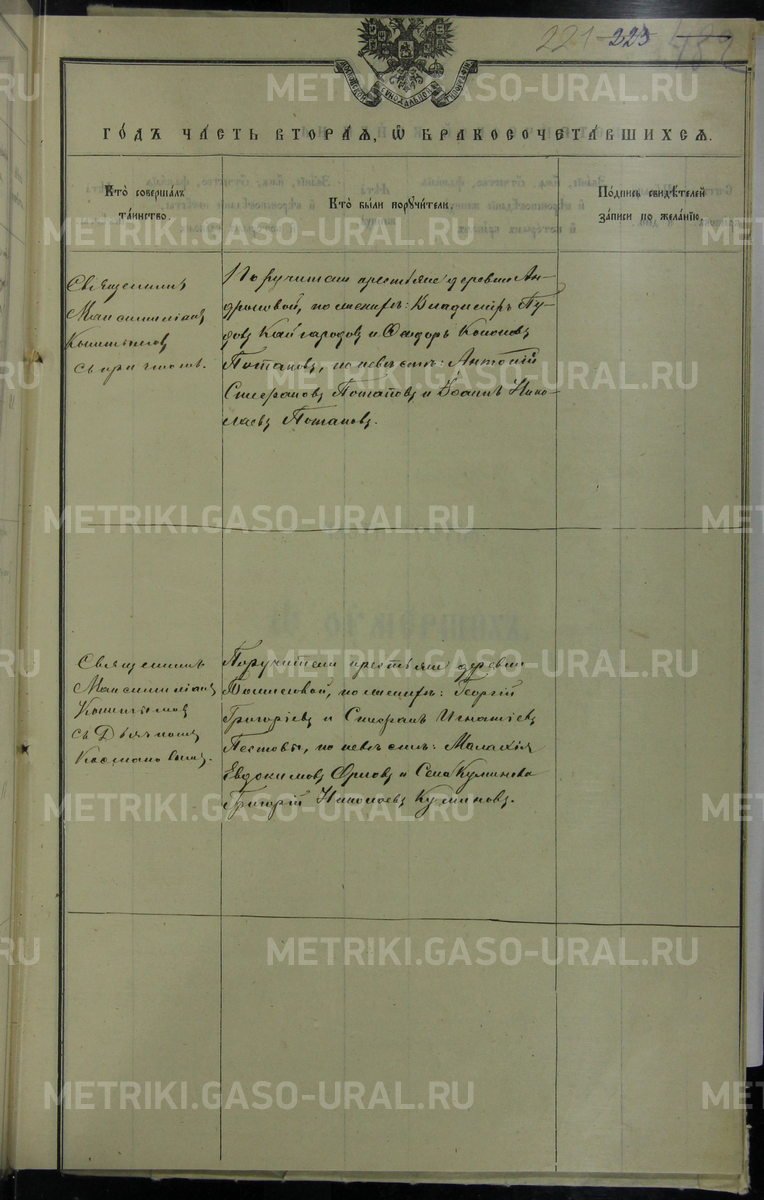 221 223 482
ГОДЪ ЧАСТЬ ВТОРАЯ, Ѡ БРАКОСОЧЕТАВШИХСЯ.
Кто совершалъ
таинство.
Кто были поручители.
Подпись свидѣтелей
записи по желанію.
Священникъ
Максимиліанъ
съ причтомъ.
Поручители крестьяне деревни Ан-
дроновой, по женихѣ: Владиміръ Пу-
довъ Кайгородовъ и Ѳеодоръ Кононовъ
Потаповъ, по невѣстѣ: Антоній
Стефановъ Потаповъ и Іоаннъ Нико-
лаевъ Потаповъ.
Священникъ
Максимиліанъ
съ Дьячкомъ
Поручители крестьяне деревни
по женихѣ: Георгій
Григоріевъ и Стефанъ Игнатіевъ
Пестовы, по невѣстѣ: Малахія
Евдокимовъ Орловъ и Села Куликова
Григорій Николаевъ Куликовъ.
METRIKI.GASO-URAL.RU